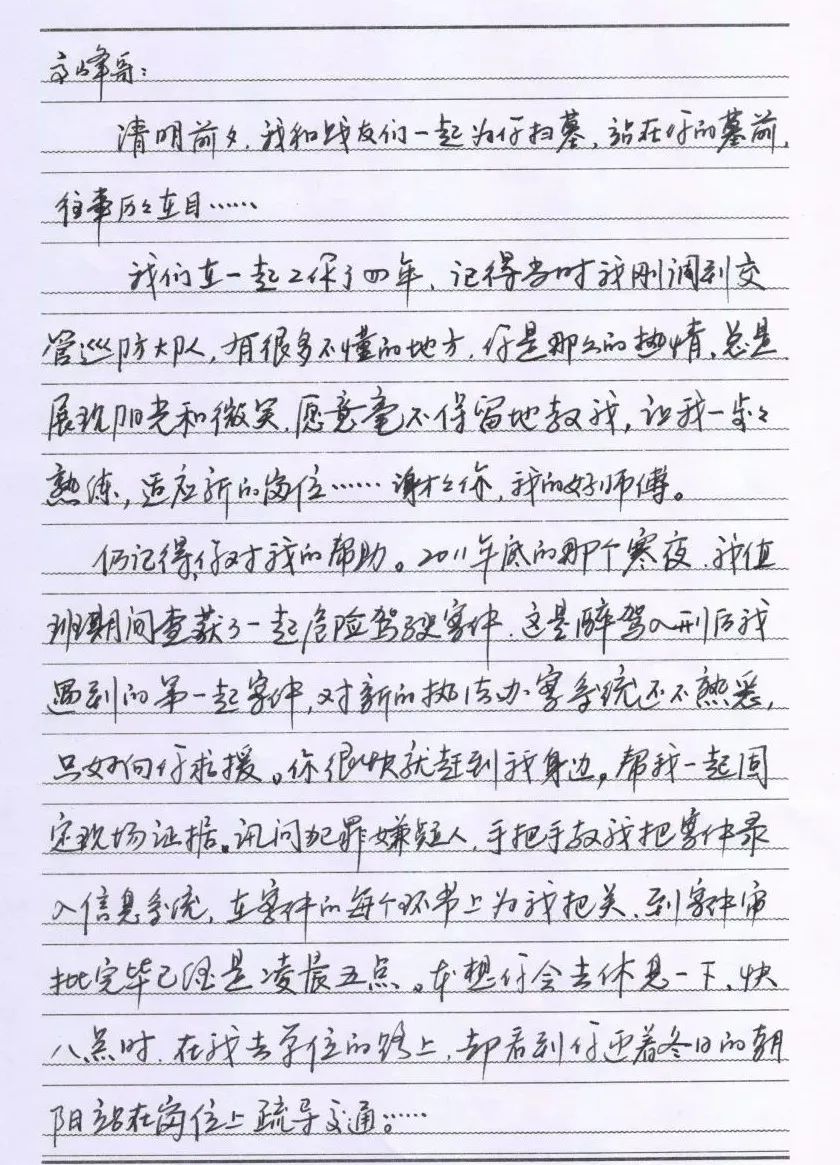 高峰哥：
清明前夕，我和战友们一起为你扫墓，站在你的墓前，
往事历々在目……
我们在一起工作了四年，记得当时我刚调到交
管巡防大队，有很多不懂的地方，你是那么的热情，总是
展现阳光和微笑，愿意毫不保留地教我，让我一步々
熟练，适应新的岗位……谢谢你，我的好师傅。
仍记得，你对我的帮助。2011年底的那个寒夜，我值
班期间查获了一起危险驾驶案件，这是醉驾入刑后我
遇到的第一起案件，对新的执法办案系统还不熟悉，
只好向你求援。你很快就赶到我身边，帮我一起固
定现场证据。讯问犯罪嫌疑人，手把手教我把案件录
入信息系统，在案件的每个环节上为我把关，到案件审
批完毕已经是凌晨五点。本想你会去休息一下，快
八点时，在我去单位的路上，却看到你迎着冬日的朝
阳站在岗位上疏导交通。……